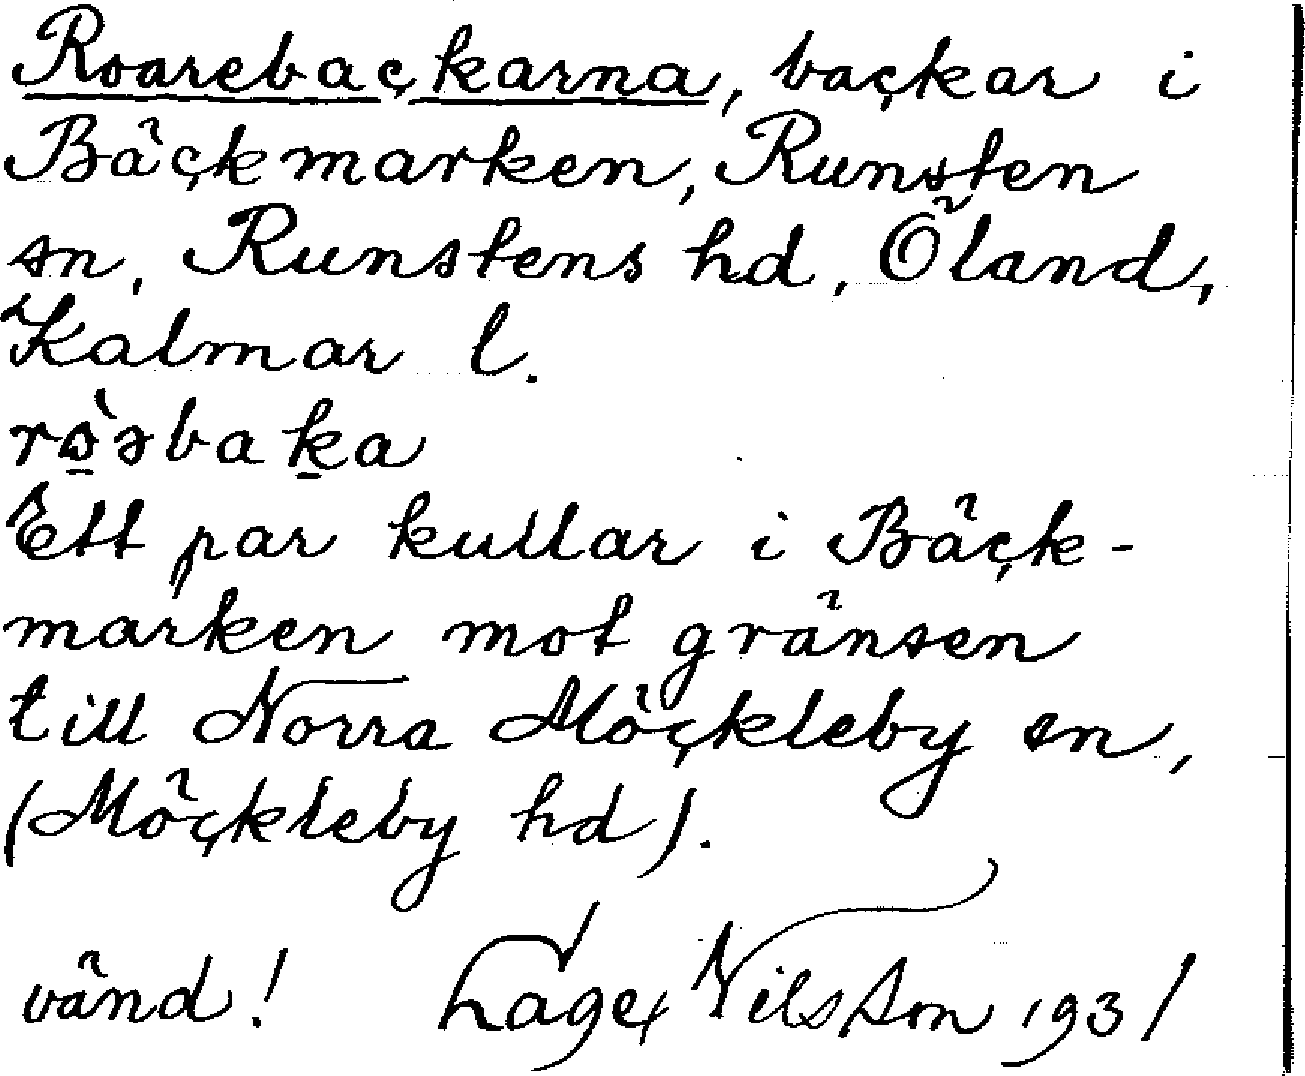 Roarebackarna, backar i
Bäckmarken, Runsten
sn, Runstens hd, Öland,
Kalmar l.
Ett par kullar i Bäck-
marken mot gränsen
till Norra Möckleby sn,
(Möckleby hd).
vänd! Lage Nilsson 1931